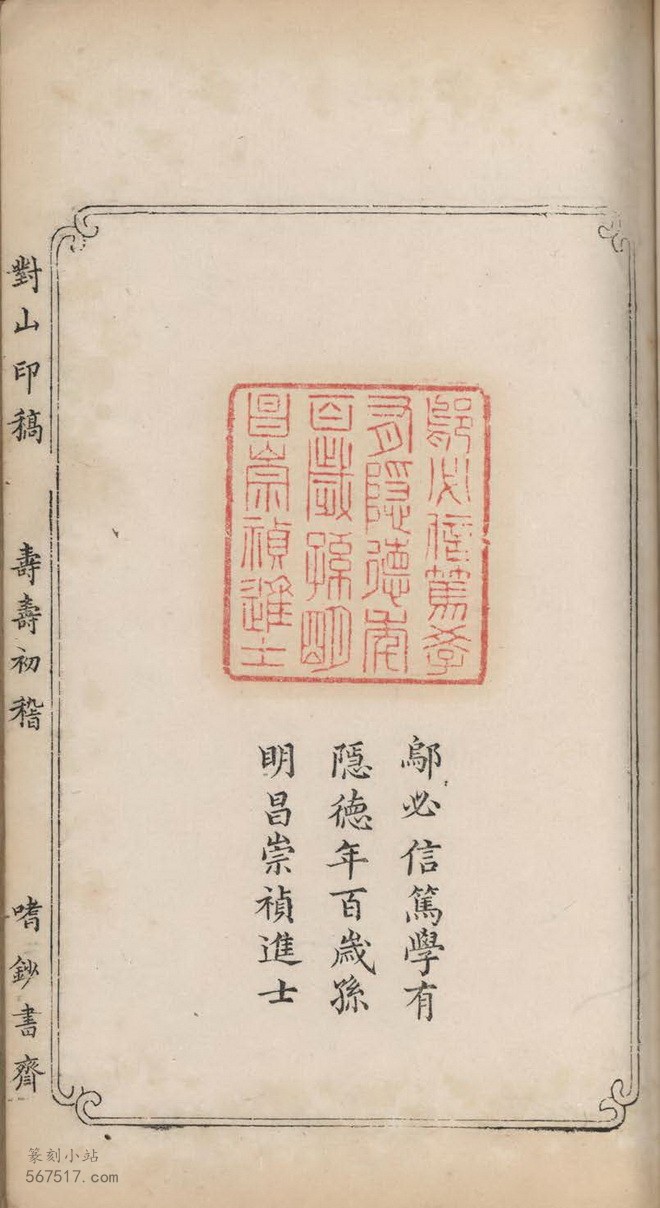 鄔必信篤學
有隱德年
百歲孫明
昌崇禎進士
鄔必信篤學有
隱德年百歲孫
明昌崇禎進士
對山印稿
壽壽初稽
嗜鈔書齋
篆刻小站
567517.com